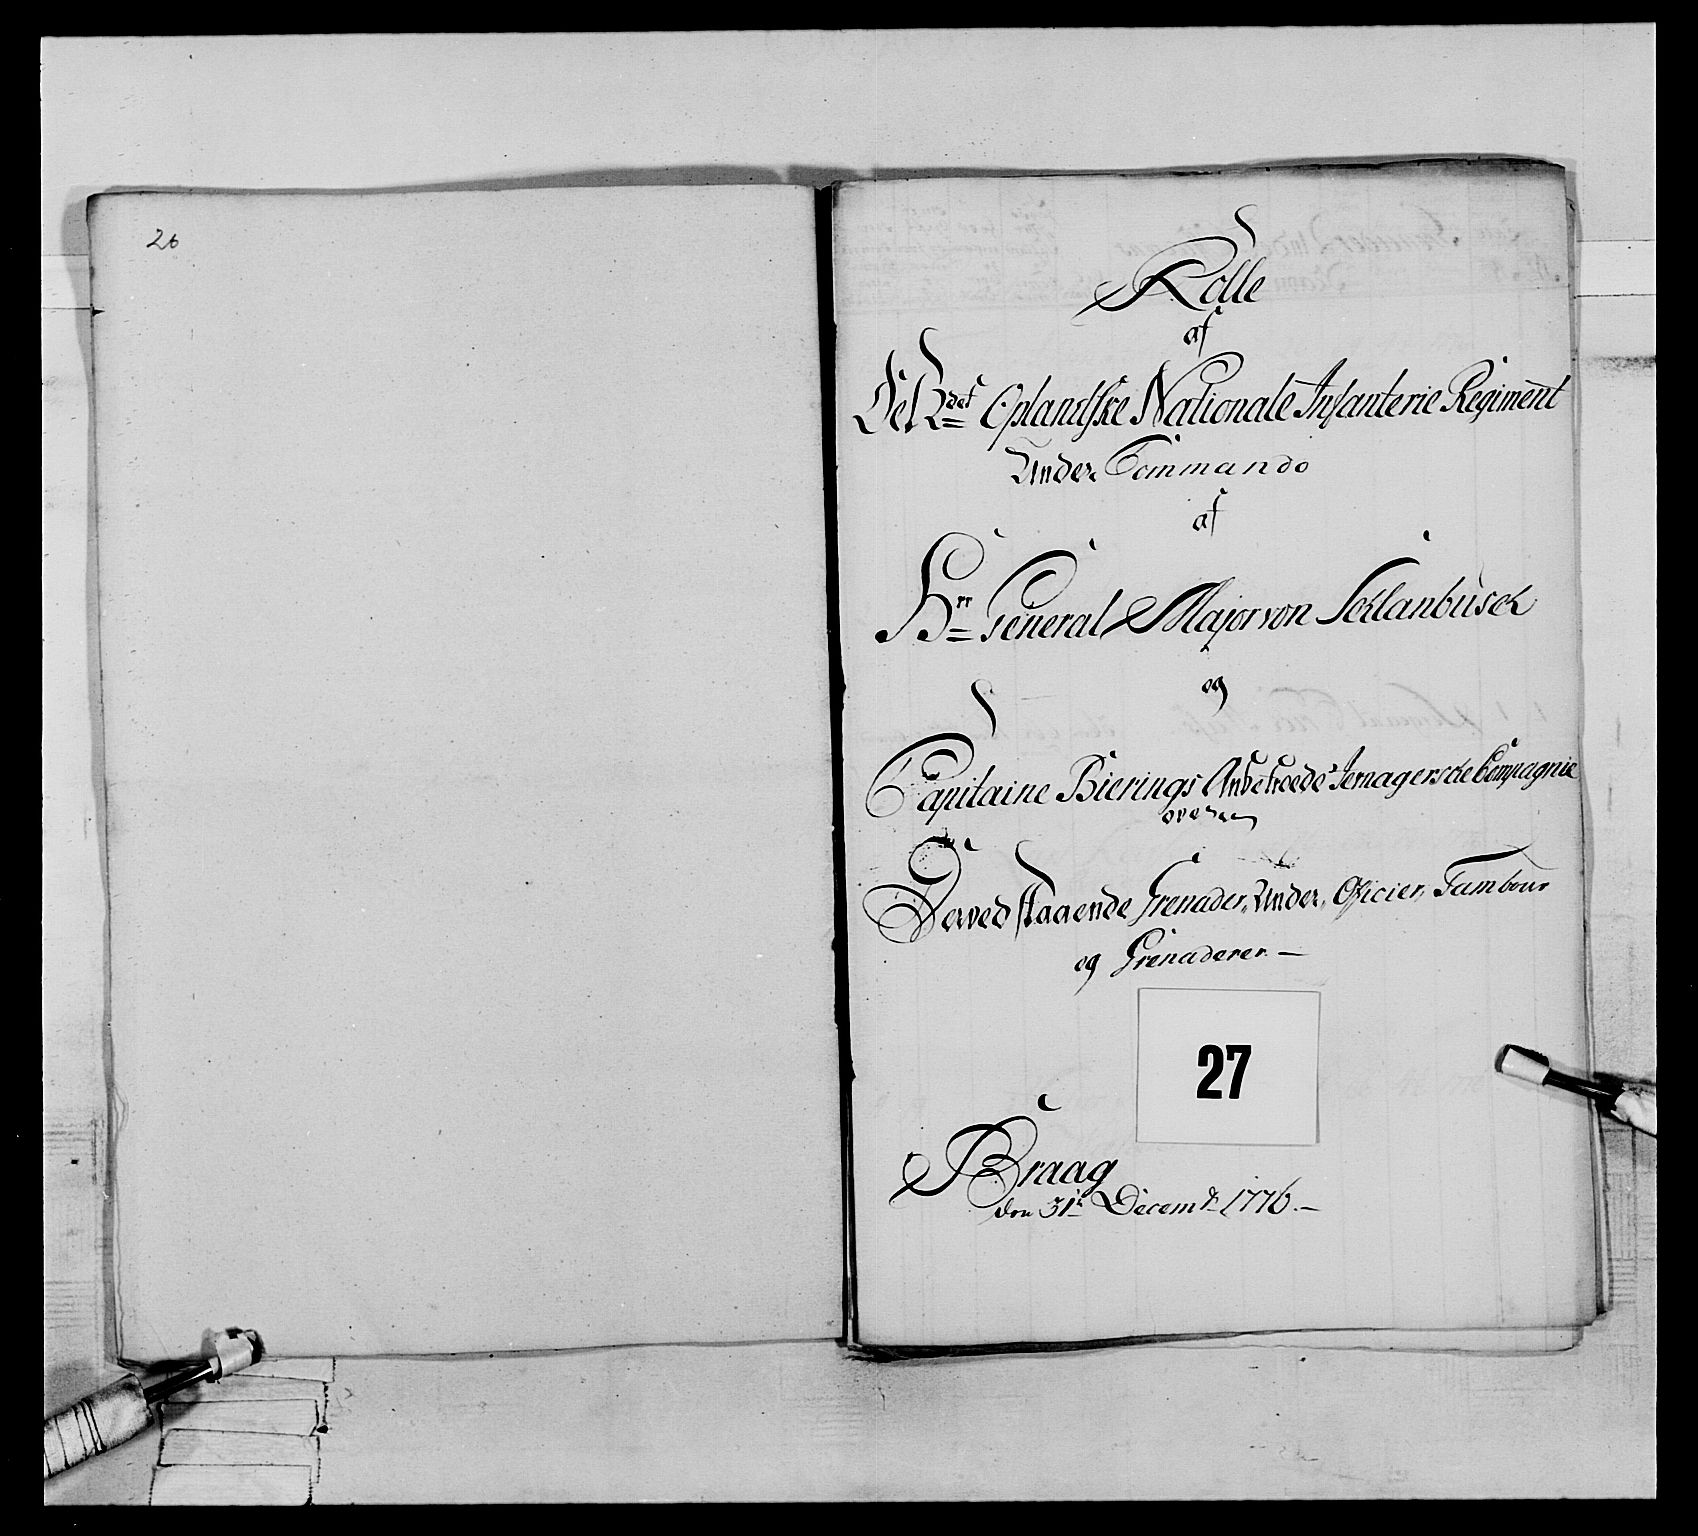 26
Rolle
af
Det 2det Oplandske Nationale Infanterie Regiment
Under Commando
af
Hrr General Major von Schlanbusch
og
Capitaine Bierings Anbetroede Jernagerske Compagnie
over
Derved staaende Grenader, Under, Oficier, Tambour
og Grenaderer. —
27
Braag
den 31te Decembr 1776. —